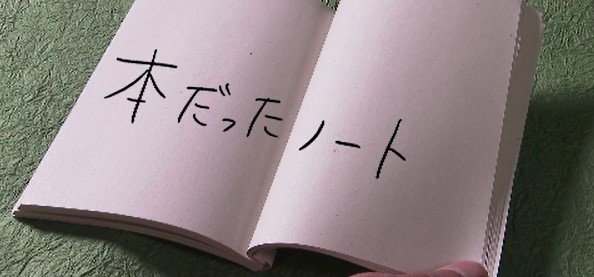 本だったノート